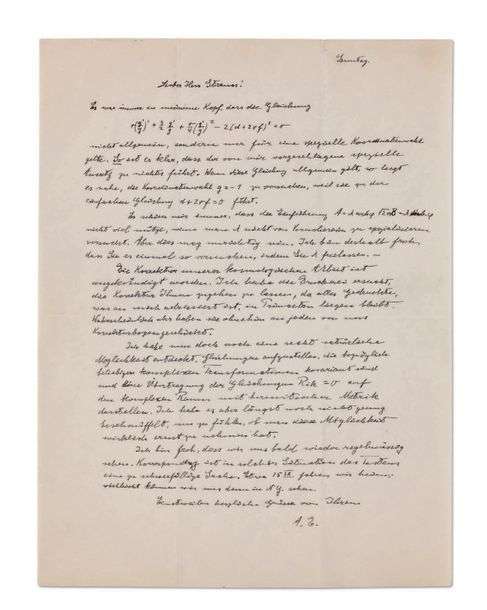 Sonntag.
Lieber Herr Strauss!
Es war immer in meinem Kopf, dass die Gleichung
nicht allgemein, sondern nur für eine spezielle Koordinatenwahl
gelte. So ist es klar, dass der von mir vorgeschlagene spezielle
Ansatz zu nichts führt. Wenn diese Gleichung allgemein gilt, so liegt
es nahe, die Koordinatenwahl zu versuchen, weil sie zu der
einfachen Gleichung führt.
Es schien mir immer, dass die Einführung
nicht viel nützt, wenn man nicht von vornherein zu spezialisieren
versucht. Aber dies mag unrichtig sein. Ich bin deshalb froh,
dass Sie es einmal so versuchen, indem Sie λ freilassen. –
Die Korrektur unserer kosmologischen Arbeit ist
angekündigt worden. Ich habe die Druckerei ersucht,
die Korrektur Ihnen zugehen zu lassen, da alles Gedruckte,
was an mich adressiert ist, in Princeton liegen bleibt.
Wahrscheinlich aber haben sie ohnehin an jeden von uns
Korrekturbogen geschickt.
Ich habe nun doch noch eine recht natürliche
Möglichkeit entdeckt, Gleichungen aufzustellen, die bezüglich
beliebigen komplexen Transformationen kovariant sind
und eine Übertragung der Gleichungen Rik = 0 auf
den komplexen Raum mit hermitischer Metrik
darstellen. Ich habe es aber längst noch nicht genug
beschnüffelt, um zu fühlen, ob man diese Möglichkeit
wirklich ernst zu nehmen hat.
Ich bin froh, dass wir uns bald wieder regelmässig
sehen. Korrespondenz ist in solcher Situation
eine zu schwerfällige Sache. Etwa 15 IX fahren wir heim,
vielleicht können wir uns dann in N.Y. sehen.
Einstweilen herzliche Grüsse von Ihrem
A. E.